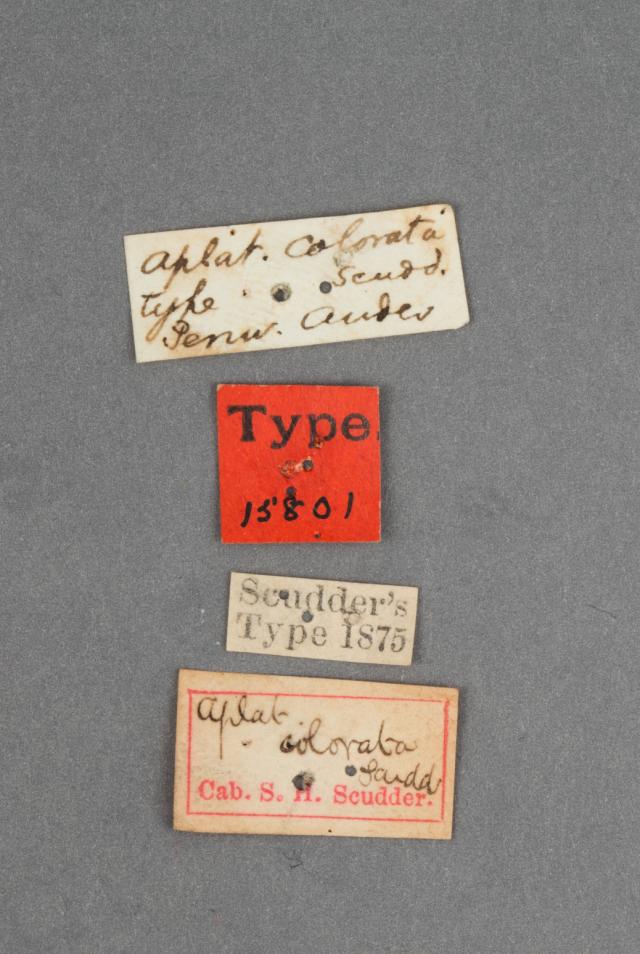 Aplat. colorata
Scudd.
type
Peruv. Andes
Type.
15801
Scudder's
Type 1875
Aplat.
colorata
Scudd
Cab. S. H. Scudder.